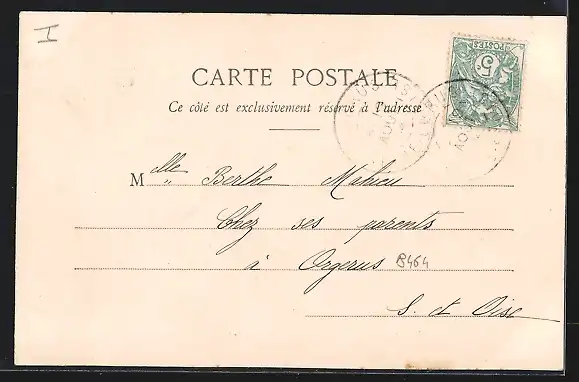 I
CARTE POSTALE
Ce côté est exclusivement réservé à l'adresse
POSTES
5c
AOUT
AOU
Mlle Berthe Mahieu
Chez ses parents
à Orgerus B464
S. et Oise